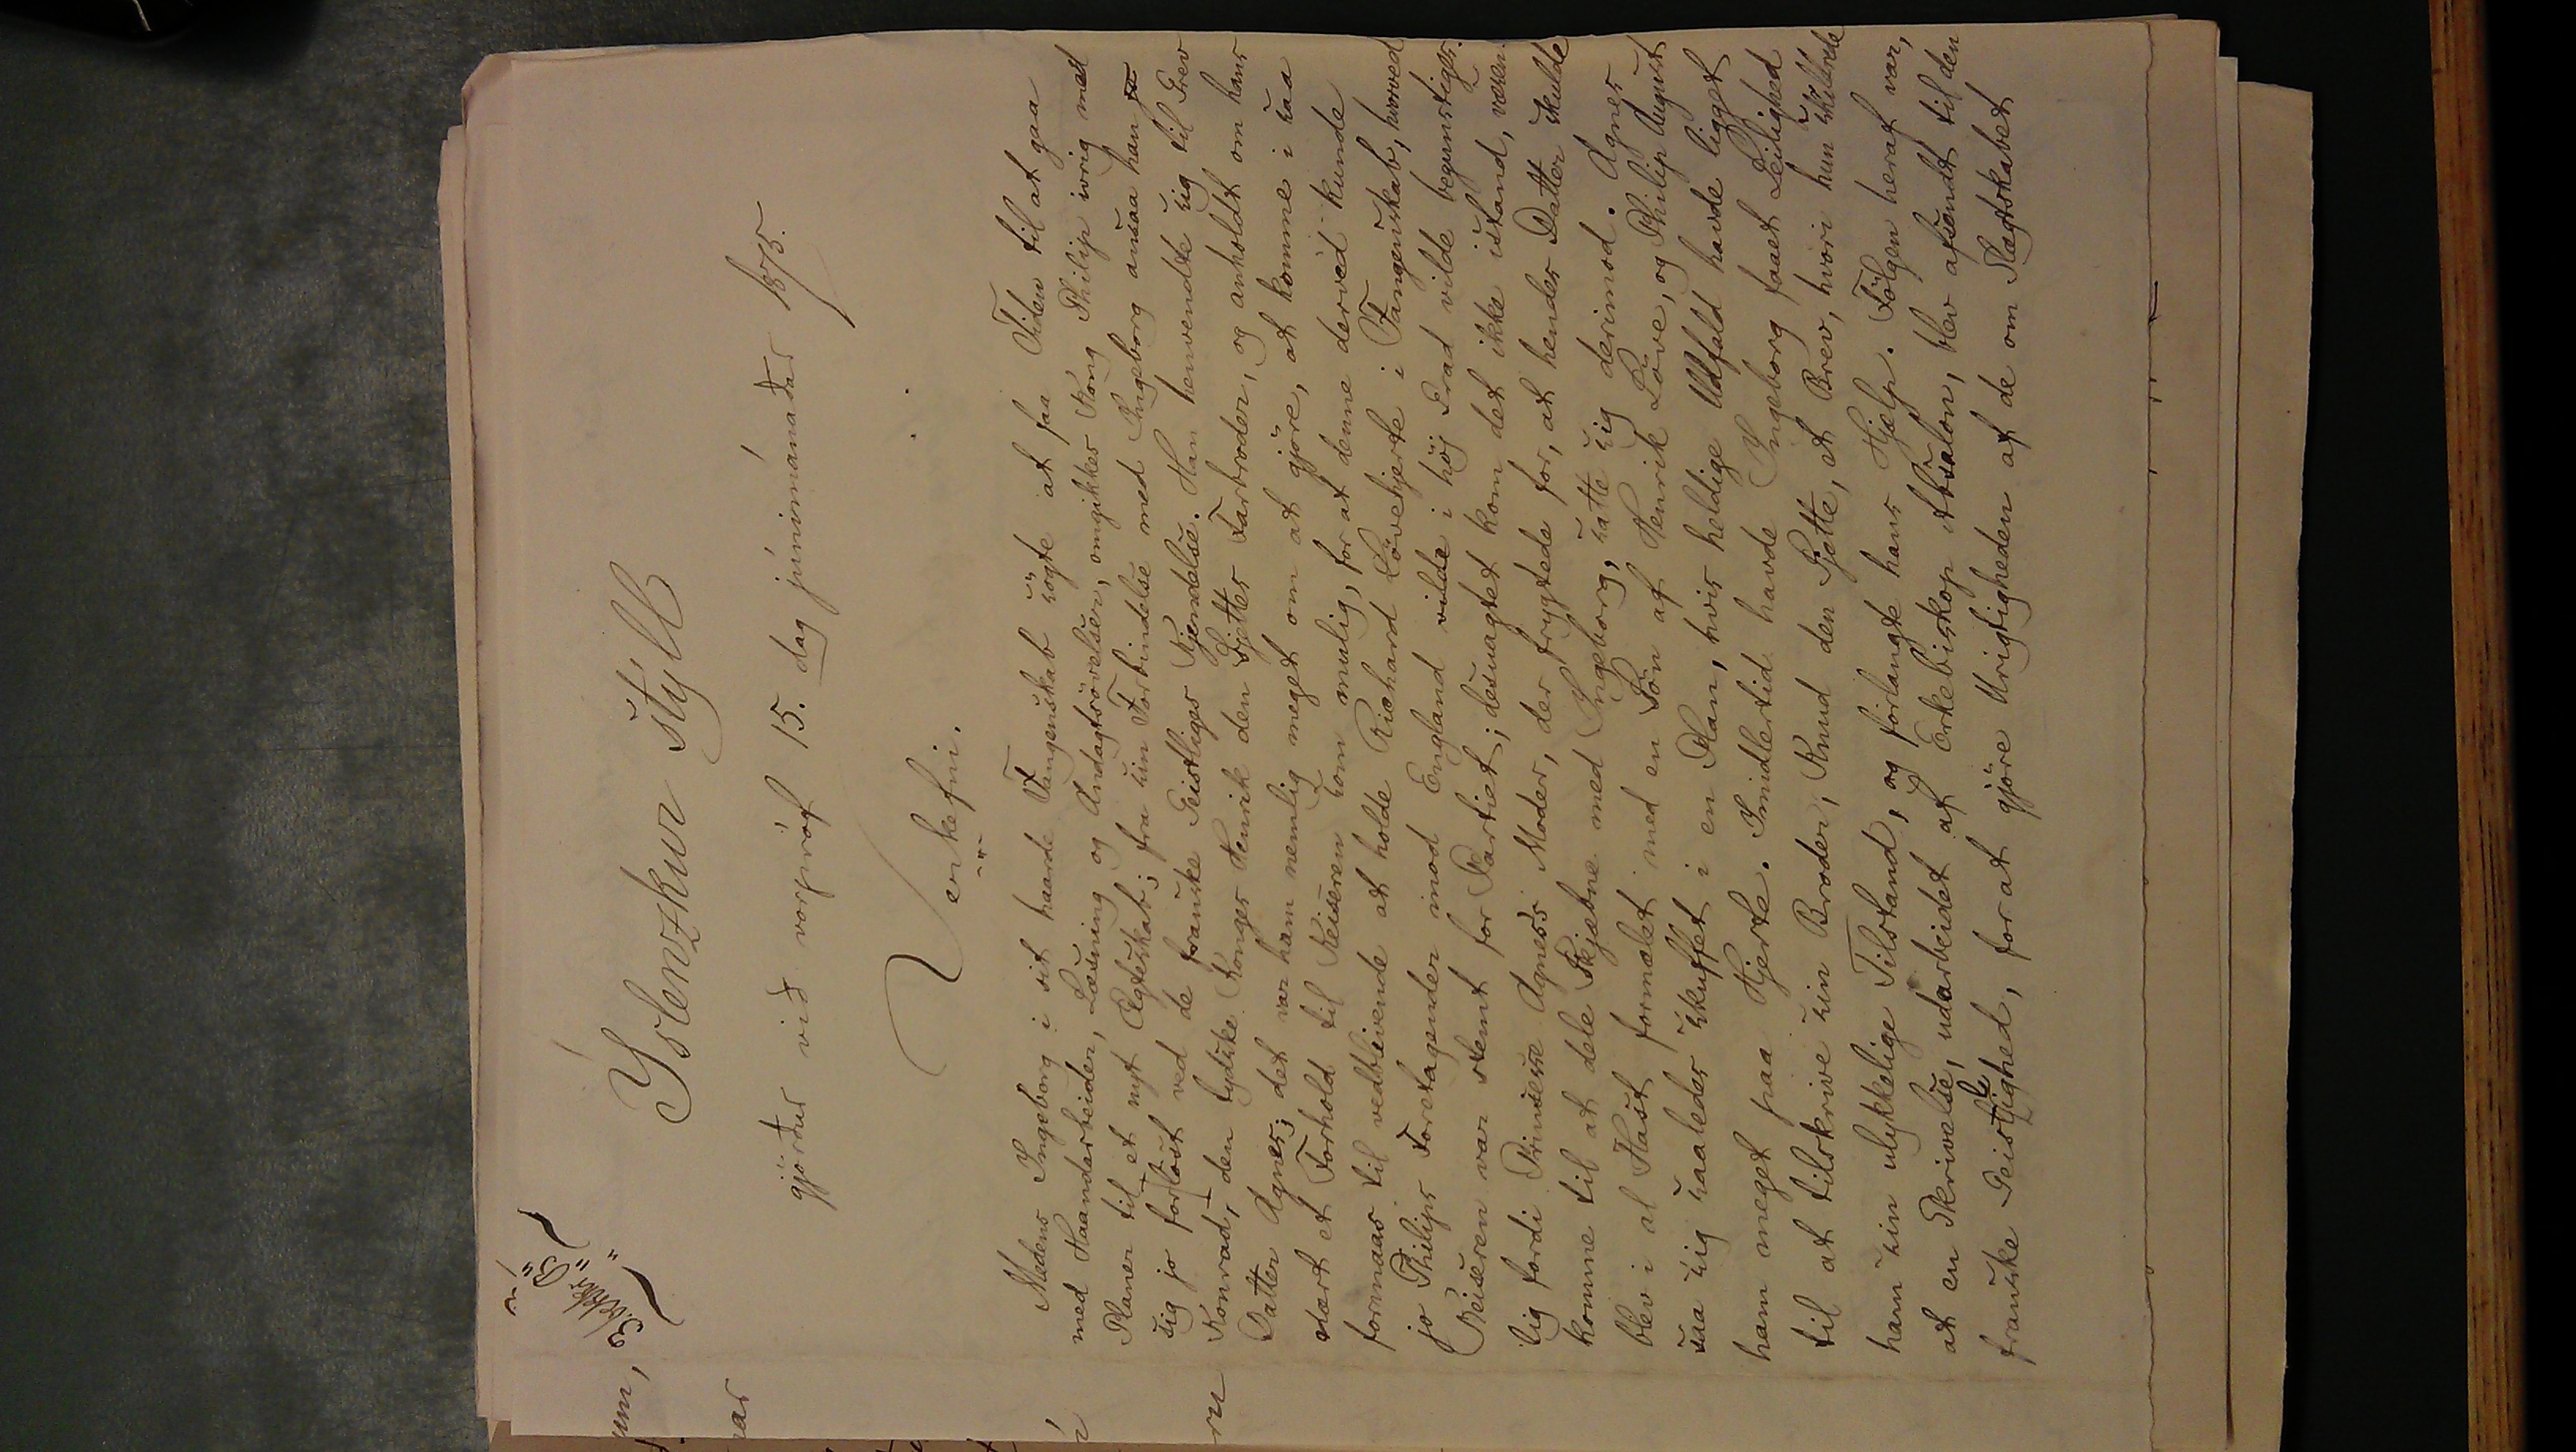 Íslenzkur stýll
gjörður við vorpróf 15. dag júnímánaðar 1875.
Verkefni.
Medens Ingeborg i sit haarde Fangenskab søgte at faa Tiden til at gaa
med Haandarbeider, Læsning og Andagtsøvelser, omgikkes Kong Philip ivrig med
Planer til et nyt Ægteskab; fra sin Forbindelse med Ingeborg ansaa han
sig jo forløst ved de franske Geistliges Kjendelse. Han henvendte sig til Grev
Konrad, den tydske Konges Henrik den Sjettes Farbroder, og anholdt om hans
Datter Agnes; det var ham nemlig meget om at gjöre, at komme i saa
stært et Forhold til Keiseren som mulig, for at denne derved kunde
formaaes til vedblivende at holde Richard Lövehjerte i Fangenskab, hvorved
jo Philips Foretagender imod England vilde i höj Grad vilde begunstiges.
Keiseren var stemt for Partiet; desuagtet kom det ikke istand, væsen-
lig fordi Prinsesse Agnes's Moder, der frygtede for, at hendes Datter skulde
komme til at dele Skjæbne med Ingeborg, satte sig derimod. Agnes
blev i al Hast formælet med en Sön af Henrik Löve, og Philip August
saa sig saaledes skuffet i en Plan, hvis heldige Udfald havde ligget
ham meget paa Hjerte. Imidlertid havde Ingeborg faaet Leilighed
til at tilskrive sin Broder, Knud den Sjette, et Brev, hvori hun skildrede
ham sin ulykkelige Tilstand, og forlangte hans Hjelp. Fölgen heraf var,
at en Skrivelse, udarbeidet af Erkebiskop Absalon, blev afsendt til den
franske Geistlighed, for at gjöre Urigtigheden af de om Slægtskabet